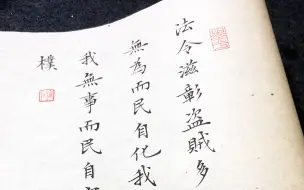 法令滋彰盜賊多
無為而民自化我
我無事而民自
樸